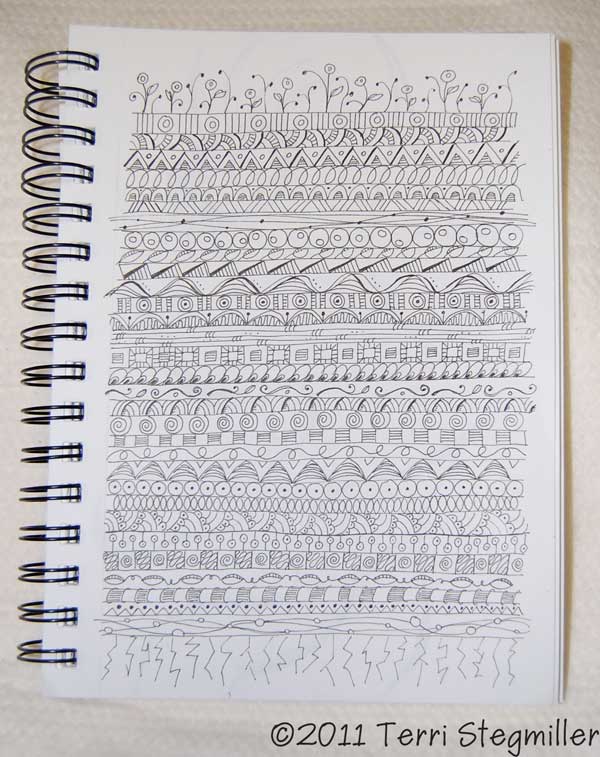 ©2011 Terri Stegmiller